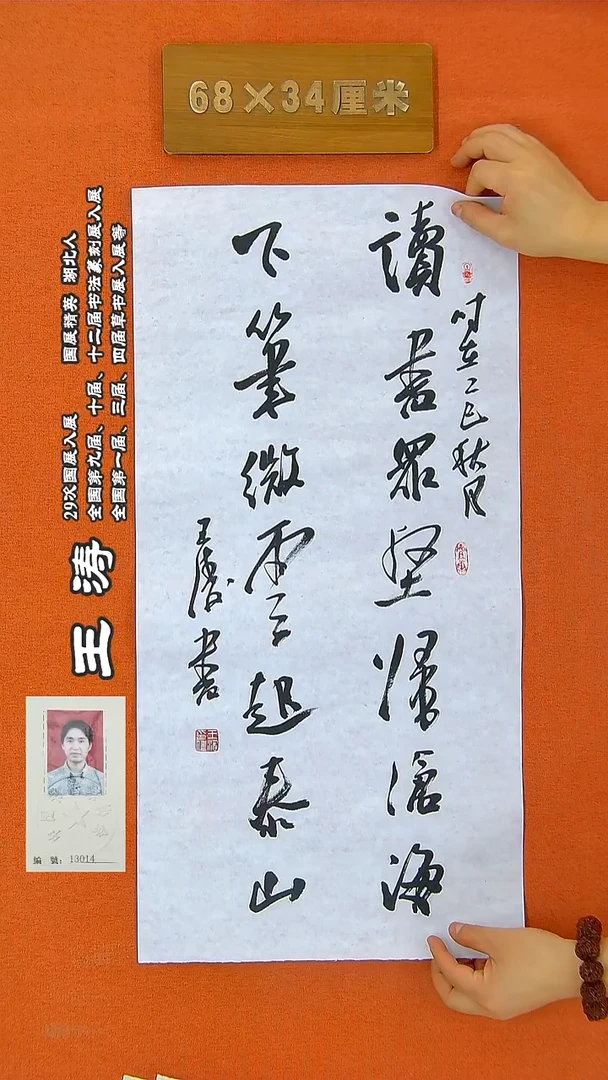 68×34厘米
讀書眾壑歸滄海
下筆微雲起泰山
時在乙巳秋月
王濤書
29次国展入展 国展精英 湖北人
全国第九届、十届、十二届书法篆刻展入展
全国第一届、三届、四届草书展入展等
王涛
編 號：13014